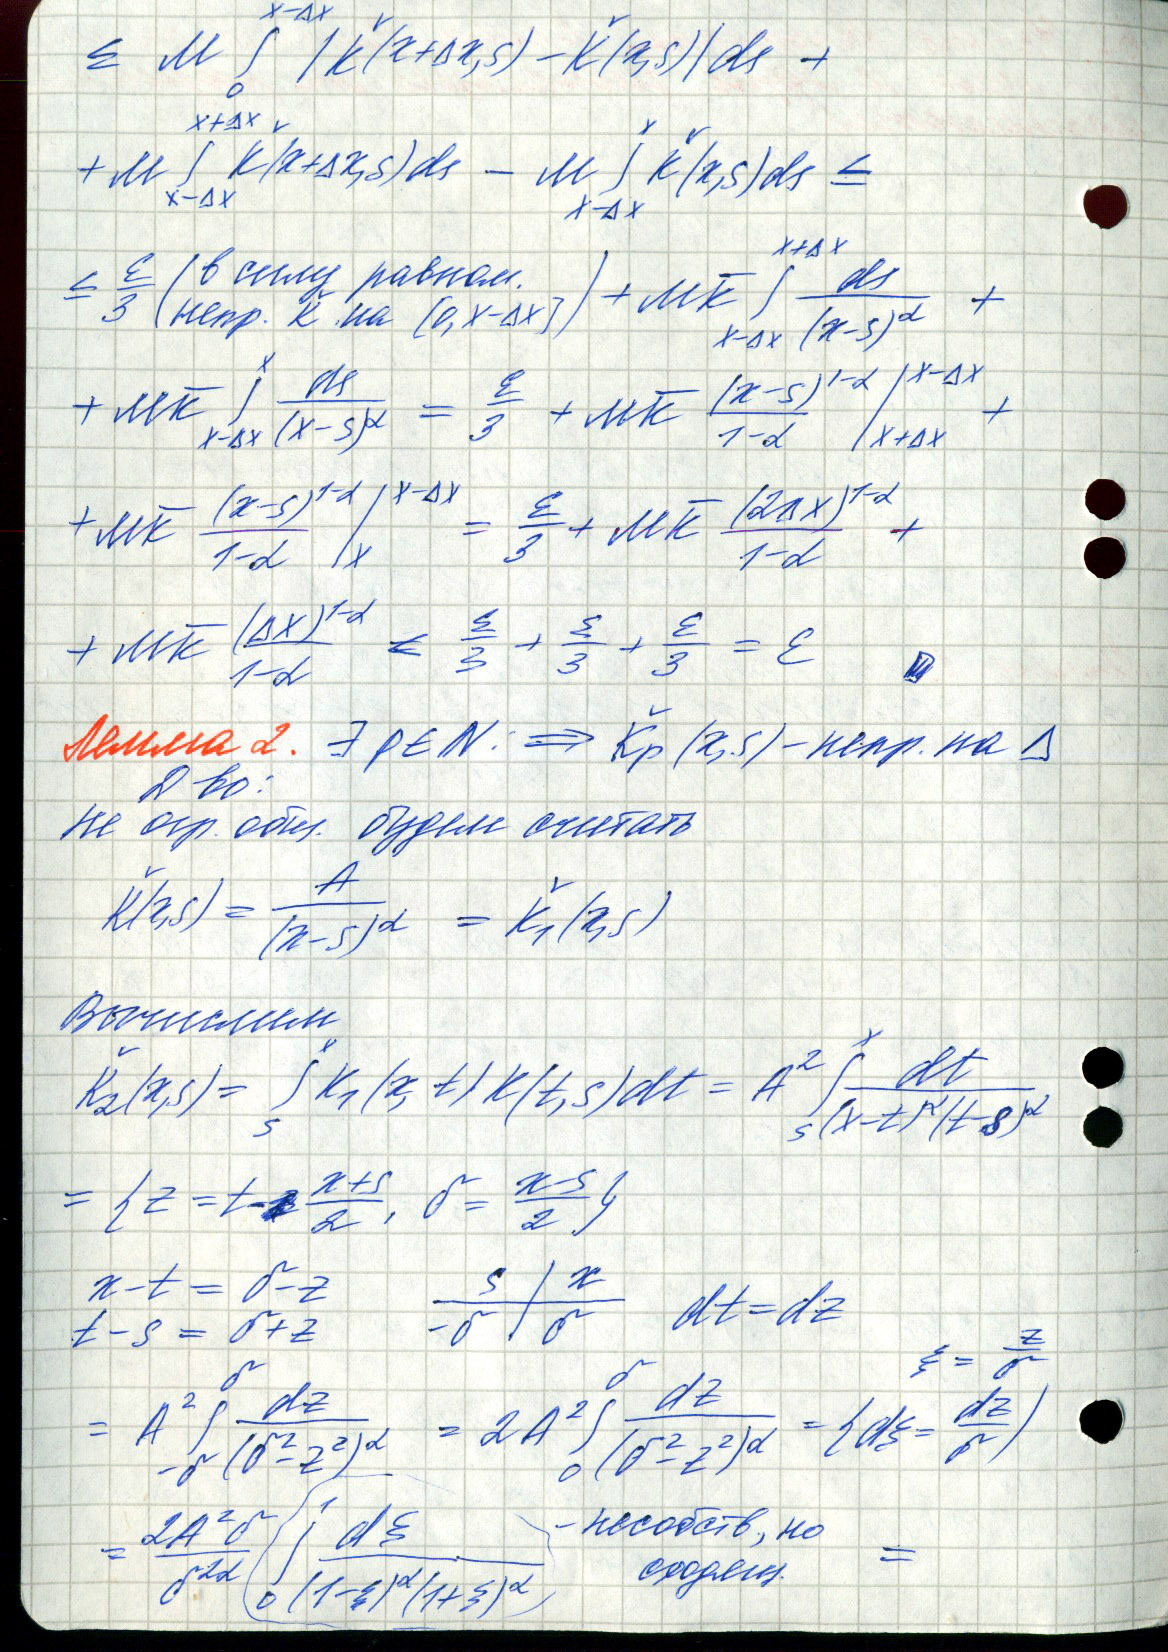 ≤ M ∫_0^{x-Δx} |Ǩ(x+Δx,s) - Ǩ(x,s)| ds +
+ M ∫_{x-Δx}^{x+Δx} Ǩ(x+Δx,s)ds - M ∫_{x-Δx}^{x} Ǩ(x,s)ds ≤
≤ ε/3 (в силу равном. непр. Ǩ на [0, x-Δx]) + MK̄ ∫_{x-Δx}^{x+Δx} ds/(x-s)^α +
+ MK̄ ∫_{x-Δx}^{x} ds/(x-s)^α = ε/3 + MK̄ (x-s)^{1-α}/(1-α) |_{x+Δx}^{x-Δx} +
+ MK̄ (x-s)^{1-α}/(1-α) |_{x}^{x-Δx} = ε/3 + MK̄ (2Δx)^{1-α}/(1-α) +
+ MK̄ (Δx)^{1-α}/(1-α) < ε/3 + ε/3 + ε/3 = ε
Лемма 2. ∃ p∈N: ⇒ Ǩ_p(x,s) - непр. на Δ
Д-во:
Не огр. общ. будем считать
Ǩ(x,s) = A/(x-s)^α = Ǩ_1(x,s)
Вычислим
Ǩ_2(x,s) = ∫_s^x K_1(x,t) K(t,s)dt = A^2 ∫_s^x dt/((x-t)^α (t-s)^α)
= {z = t - (x+s)/2, σ = (x-s)/2}
x-t = σ-z s | x dt = dz
t-s = σ+z -σ | σ
ξ = z/σ
= A^2 ∫_{-σ}^{σ} dz/(σ^2-z^2)^α = 2A^2 ∫_0^σ dz/(σ^2-z^2)^α = {dξ = dz/σ}
= 2A^2σ/σ^{2α} (∫_0^1 dξ/((1-ξ)^α (1+ξ)^α)) - несобств, но сходящ. =